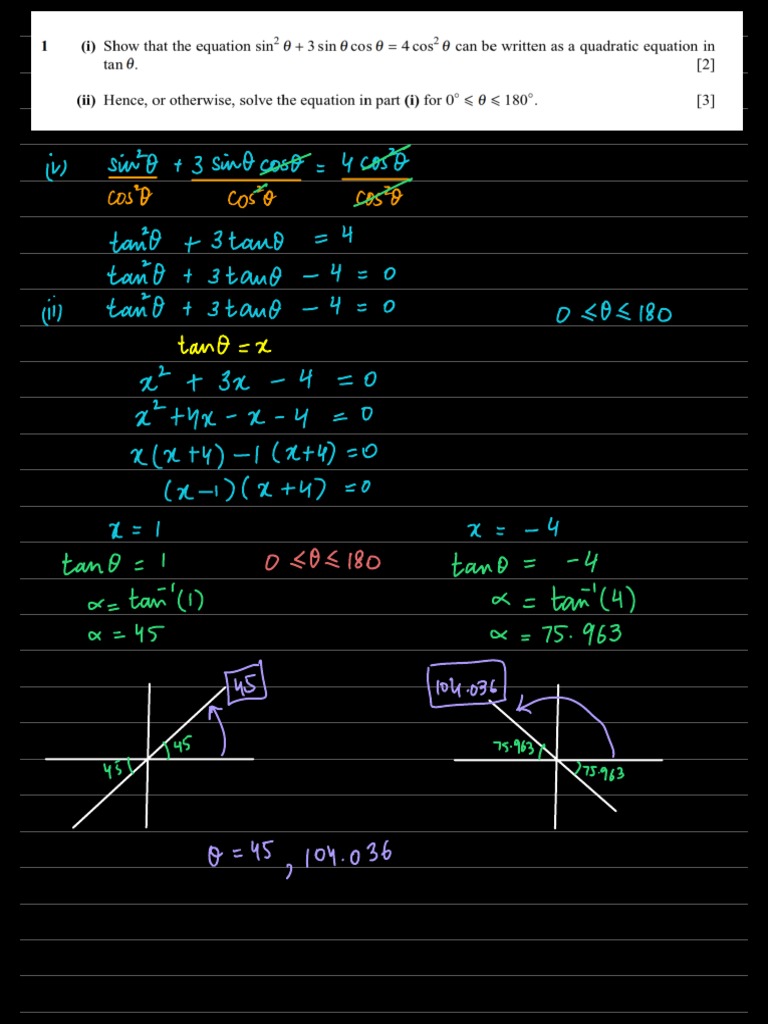 1 (i) Show that the equation sin² θ + 3 sin θ cos θ = 4 cos² θ can be written as a quadratic equation in
tan θ. [2]
(ii) Hence, or otherwise, solve the equation in part (i) for 0° ⩽ θ ⩽ 180°. [3]
(i) sin²θ/cos²θ + 3 sinθ cosθ/cos²θ = 4 cos²θ/cos²θ
tan²θ + 3tanθ = 4
tan²θ + 3tanθ - 4 = 0
(ii) tan²θ + 3tanθ - 4 = 0 0 ⩽ θ ⩽ 180
tanθ = x
x² + 3x - 4 = 0
x² + 4x - x - 4 = 0
x(x+4) - 1(x+4) = 0
(x-1)(x+4) = 0
x = 1 x = -4
tanθ = 1 0 ⩽ θ ⩽ 180 tanθ = -4
α = tan⁻¹(1) α = tan⁻¹(4)
α = 45 α = 75.963
45 104.036
45 75.963
45 75.963
θ = 45, 104.036